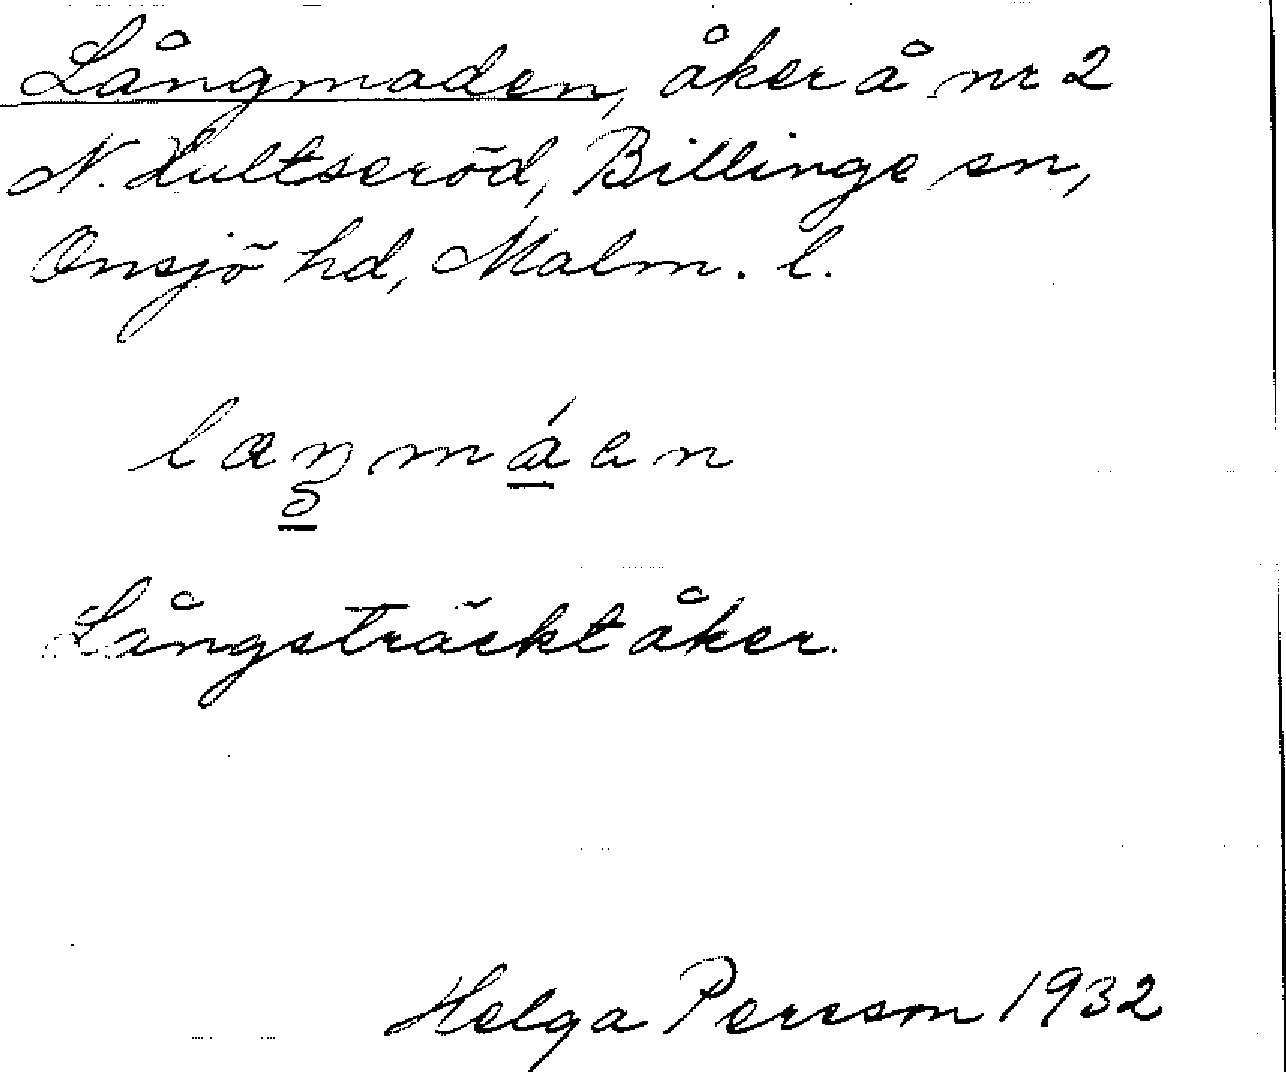 Långmaden, åker å nr 2
N. Hultseröd, Billinge sn,
Onsjö hd, Malm. l.
Långsträckt åker.
Helga Persson 1932